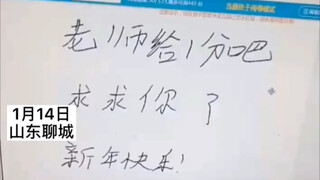 老师给1分吧
求求你了
1月14日
山东聊城
新年快乐!